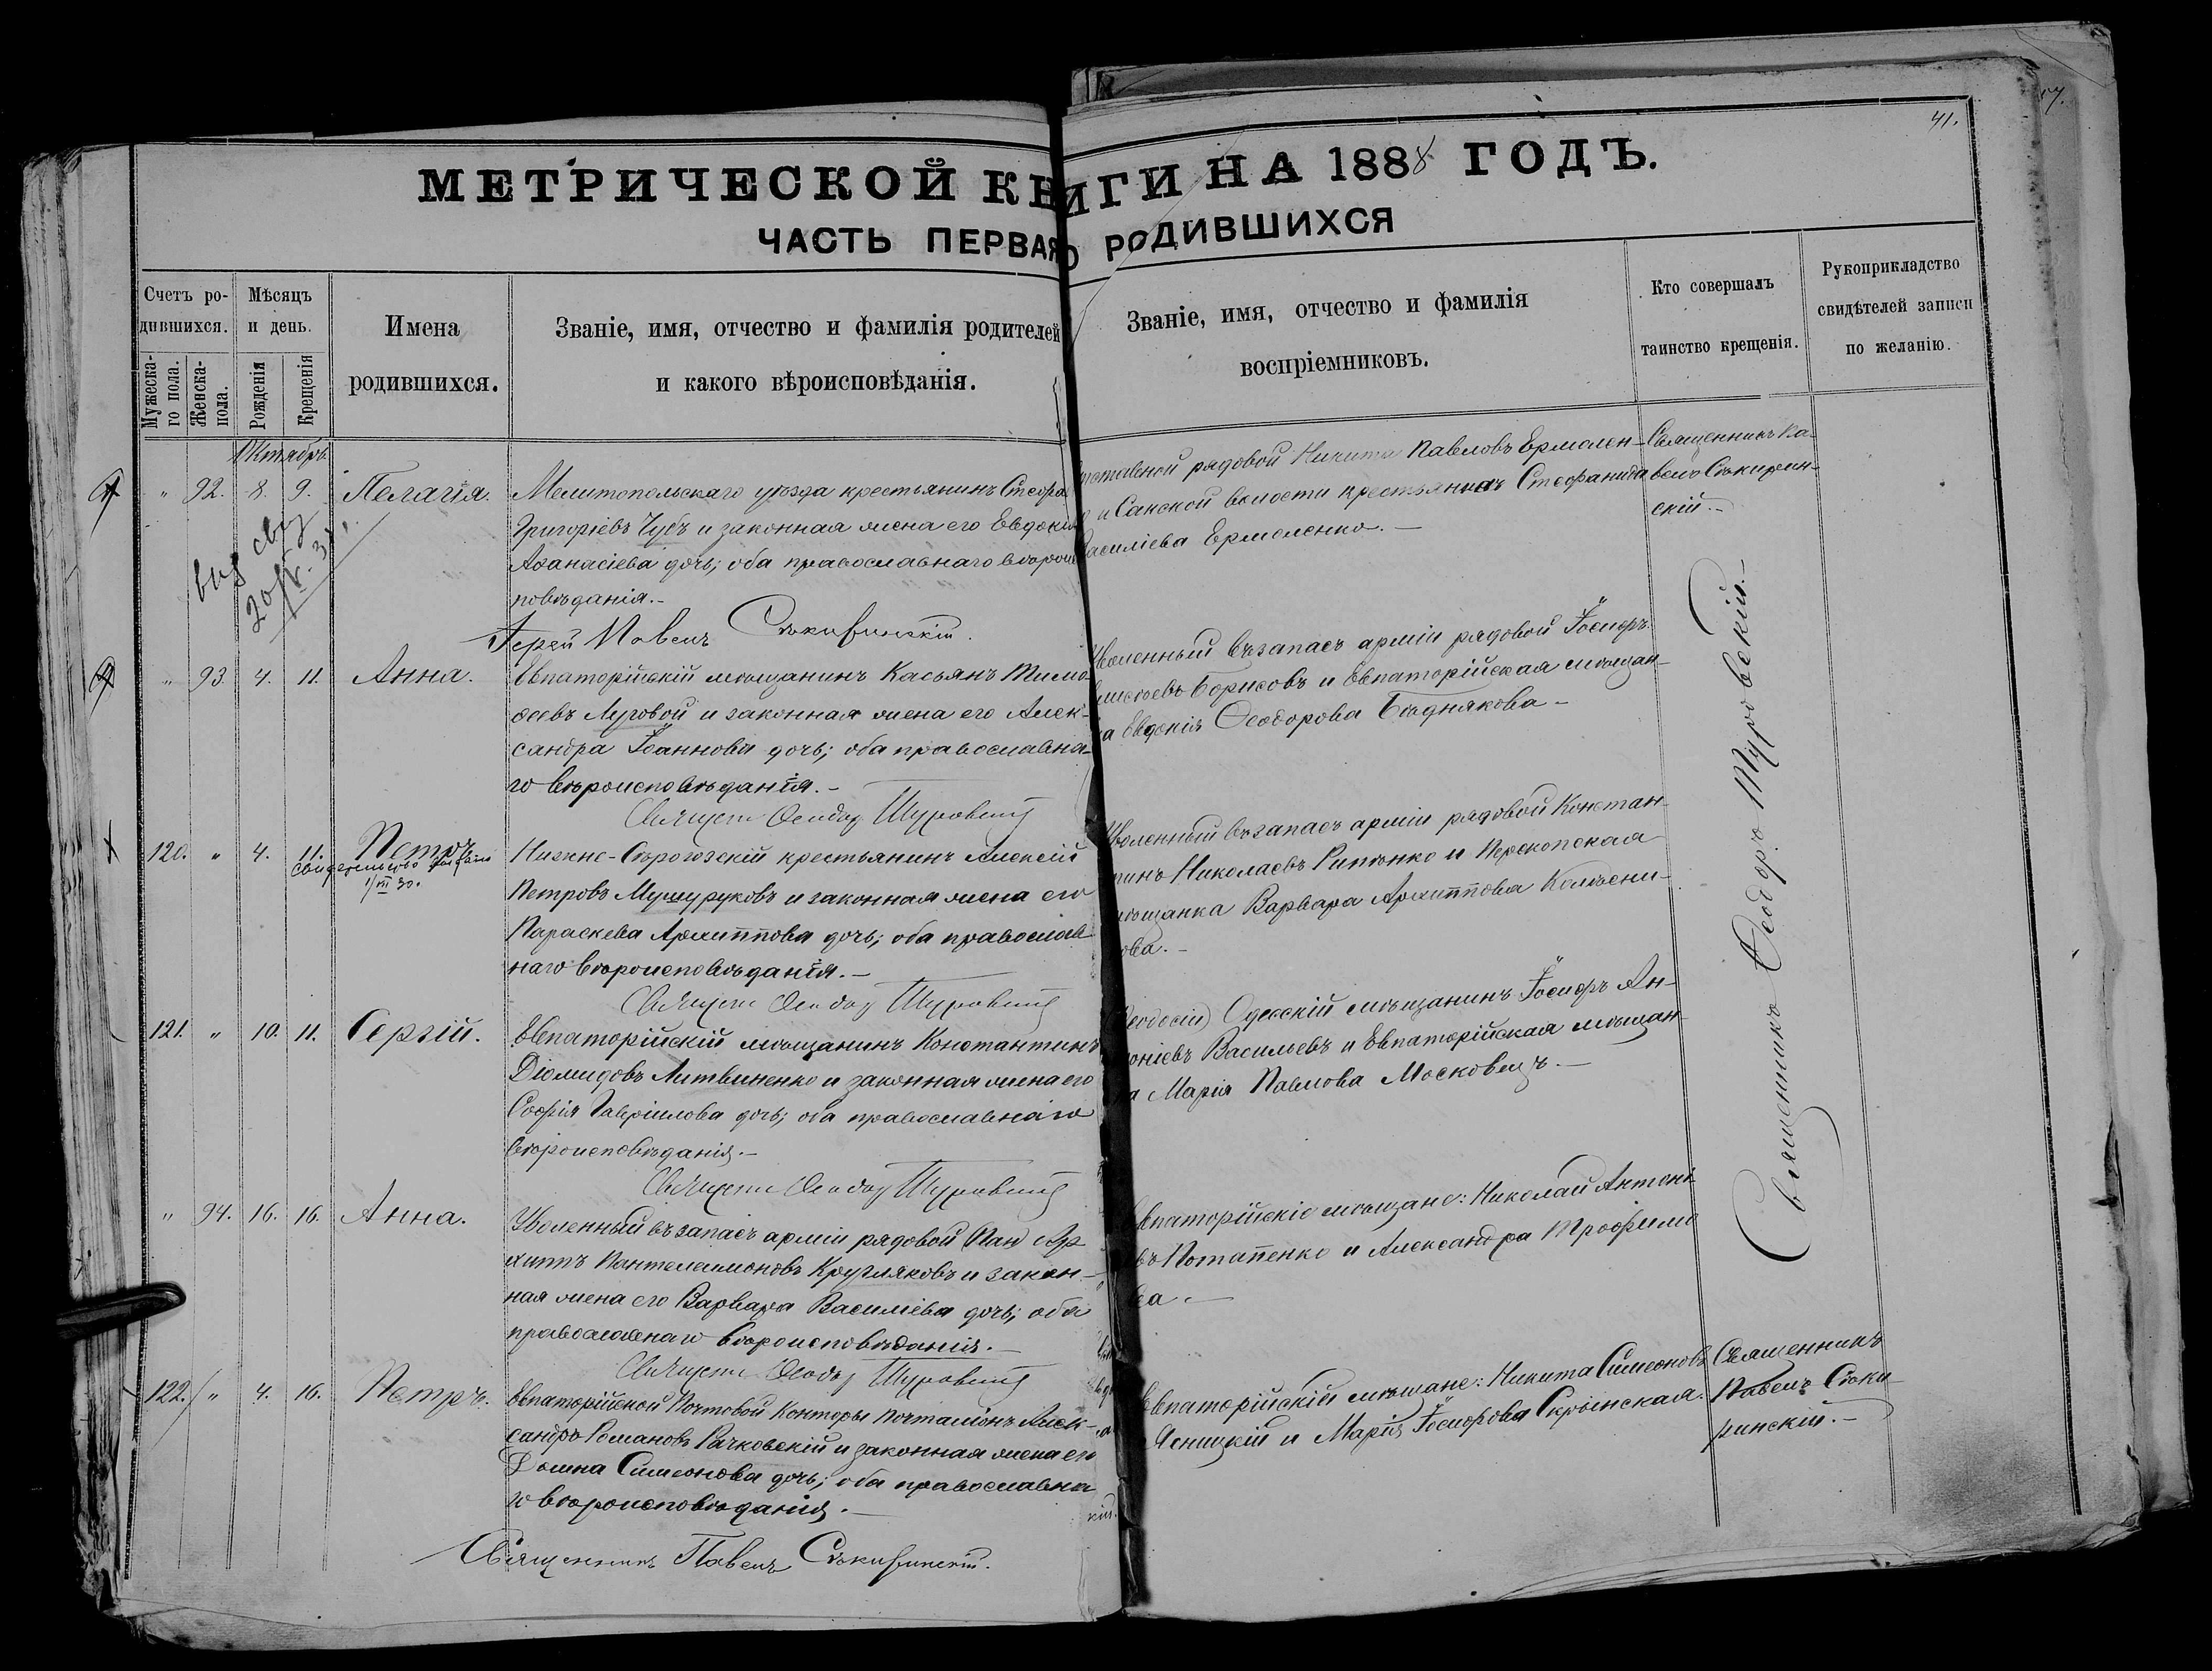 41.
МЕТРИЧЕСКОЙ КНИГИ НА 1888 ГОДЪ.
ЧАСТЬ ПЕРВАЯ О РОДИВШИХСЯ
Счетъ родившихся.
Мужескаго пола.
Женска- пола.
Мѣсяцъ и день.
Рожденія
Крещенія
Имена родившихся.
Званіе, имя, отчество и фамилія родителей
и какого вѣроисповѣданія.
Званіе, имя, отчество и фамилія
воспріемниковъ.
Кто совершалъ
таинство крещенія.
Рукоприкладство
свидѣтелей записи
по желанію.
Октябрь
" 92. 8. 9. Пелагія.
Мелитопольскаго уѣзда крестьянинъ Стефа
Григоріевъ Чубъ и законная жена его Евдокія
Аѳанасіева дочь; оба православнаго вѣроис
повѣданія.-
Іерей Павелъ Сѣкиринскій.
рядовой Никита Павловъ Ермолен-
и Санской волости крестьянка Стефанида
Василіева Ермоленко.-
Священникъ Па-
велъ Сѣкирин-
скій.-
" 93. 4. 11. Анна.
Евпаторійскій мѣщанинъ Касьянъ Тимо
ѳеевъ Луговой и законная жена его Алек-
сандра Іоаннова дочь; оба православна-
го вѣроисповѣданія.-
Священ Ѳеодор Туровскій
Уволенный въ запасъ арміи рядовой Іосифъ
Борисовъ и Евпаторійская мѣщан-
ка Евдокія Ѳеодорова Бѣднякова-
Священникъ Ѳеодоръ Туровскій.-
120. " 4. 11. Петръ.
Свидетельство
1/VII 30.
Нижне-Сѣрогозскій крестьянинъ Алексій
Петровъ Мушуруковъ и законная жена его
Параскева Архиппова дочь; оба православ
наго вѣроисповѣданія.-
Священ Ѳеодор Туровскій
Уволенный въ запасъ арміи рядовой Констан-
тинъ Николаевъ Рипенко и Перекопская
мѣщанка Варвара Архиппова Колѣсни-
кова.-
121. " 10. 11. Сергій.
Евпаторійскій мѣщанинъ Константинъ
Діомидовъ Литвиненко и законная жена его
Софія Гавріилова дочь; оба православнаго
вѣроисповѣданія.-
Священ Ѳеодор Туровскій
(Ѳеодосій) Одесскій мѣщанинъ Іосифъ Ан-
тоніевъ Васильевъ и Евпаторійская мѣщан-
ка Марія Павлова Московецъ.-
" 94. 16. 16. Анна.
Уволенный въ запасъ арміи рядовой (Пан) Ар
хиппъ Пантелеимоновъ Кругляковъ и закон-
ная жена его Варвара Василіева дочь; оба
православнаго вѣроисповѣданія.-
Священ Ѳеодор Туровскій
Евпаторійскіе мѣщане: Николай Антоні
евъ Потапенко и Александра Трофимо
ва.-
122. " 4. 16. Петръ.
Евпаторійской Почтовой Конторы почталіонъ Алек-
сандръ Романовъ Рачковскій и законная жена его
Домна Симеонова дочь; оба православна
го вѣроисповѣданія.-
Священникъ Павелъ Сѣкиринскій.
Евпаторійскіе мѣщане: Никита Симеоновъ
Ясницкій и Марія Іосифова Скрынская.
Священникъ
Павелъ Сѣки-
ринскій.-